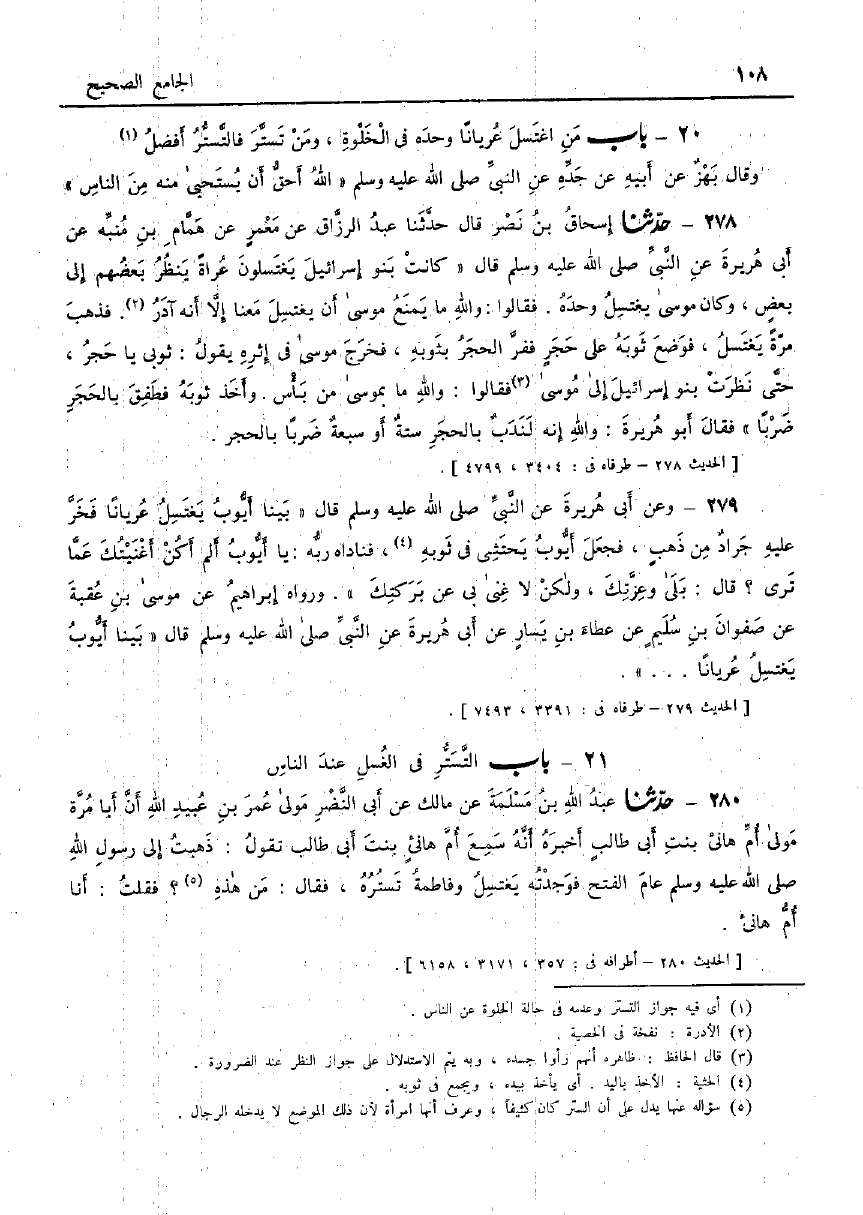 ١٠٨
الجامع الصحيح
٢٠ – باب مَنِ اغتَسلَ عُريانًا وحدَه فى الْخَلْوةِ ، ومَنْ تَستَّرَ فالتَّستُّرُ أَفضلُ (١)
وقال بَهْزٌ عن أَبيهِ عن جَدِّهِ عنِ النبيِّ صلى الله عليه وسلم « اللهُ أَحقُّ أَن يُستَحيىٰ منه مِنَ الناسِ »
٢٧٨ – حدّثنا إسحاقُ بنُ نَصْرٍ قال حدَّثَنا عبدُ الرزَّاق عن مَعْمرٍ عن هَمَّامِ بنِ مُنبِّه عن
أَبى هُريرةَ عنِ النَّبيِّ صلى الله عليه وسلم قال « كانتْ بَنو إسرائيلَ يَغتَسلونَ عُراةً يَنظُرُ بَعضُهم إلى
بعضٍ ، وكان موسىٰ يغتسِلُ وحدَهُ . فقالوا : واللهِ ما يَمنَعُ موسىٰ أَن يغتسِلَ مَعنا إلَّا أَنه آدَرُ (٢). فذهبَ
مرّةً يَغتَسلُ ، فوَضعَ ثَوبَهُ على حَجَرٍ ففرَّ الحجَرُ بثَوبهِ ، فخرَجَ موسىٰ فى إثرِهِ يقولُ : ثوبى يا حَجرُ ،
حتَّى نَظرَتْ بنو إسرائيلَ إلىٰ مُوسىٰ (٣) فقالوا : واللهِ ما بموسىٰ من بَأْس . وأَخَذ ثوبَهُ فطَفِقَ بالحَجَرِ
ضَرْبًا » فقالَ أَبو هُريرةَ : واللهِ إنه لَنَدَبٌ بالحجَرِ ستةٌ أَو سبعةٌ ضَربًا بالحجر .
[ الحديث ٢٧٨ – طرفاه فى : ٣٤٠٤ ، ٤٧٩٩ ] .
٢٧٩ – وعن أَبى هُريرةَ عنِ النَّبيِّ صلى الله عليه وسلم قال « بَينا أَيُّوبُ يَغتَسِلُ عُريانًا فَخَرَّ
عليهِ جَرادٌ مِن ذَهبٍ ، فجعَلَ أَيُّوبُ يَحتَثِى فى ثَوبهِ (٤) ، فناداه ربُّه : يا أَيُّوبُ أَلم أَكُنْ أَغنَيْتُكَ عَمَّا
تَرى ؟ قال : بَلَىٰ وعِزَّتِكَ ، ولٰكنْ لا غِنىٰ بى عن بَرَكتِكَ » . ورواه إبراهيمُ عن موسىٰ بنِ عُقبةَ
عن صَفوانَ بنِ سُلَيمٍ عن عطاءَ بنِ يَسارٍ عن أَبى هُريرةَ عنِ النَّبيِّ صلىٰ الله عليه وسلم قال « بَينا أَيُّوبُ
يَغتسِلُ عُريانًا . . . » .
[ الحديث ٢٧٩ – طرفاه فى : ٣٣٩١ ، ٧٤٩٣ ] .
٢١ – باب التَّسَتُّرِ فى الغُسلِ عندَ الناسِ
٢٨٠ – حدّثنا عبدُ اللهِ بنُ مَسْلَمَةَ عن مالك عن أَبى النَّضْرِ مَولىٰ عمرَ بنِ عُبيدِ اللهِ أَنَّ أَبا مُرَّة
مَولىٰ أُمِّ هانىْ بنتِ أَبى طالبٍ أَخبرَهُ أَنَّهُ سَمِعَ أُمَّ هانىْ بنتَ أَبى طالب تقولُ : ذَهبتُ إلى رسولِ اللهِ
صلى الله عليه وسلم عامَ الفتح فوَجدْتُه يَغتسِلُ وفاطمةُ تَستُرُهُ ، فقال : مَن هٰذهِ (٥) ؟ فقلتُ : أَنا
أُمُّ هانىْ .
[ الحديث ٢٨٠ – أطرافه فى : ٣٥٧ ، ٣١٧١ ، ٦١٥٨ ] .
(١) أى فيه جواز التستر وعدمه فى حالة الخلوة عن الناس .
(٢) الأدرة : نفخة فى الخصية .
(٣) قال الحافظ : ظاهره أنهم رأوا جسده ، وبه يتم الاستدلال على جواز النظر عند الضرورة .
(٤) الحثية : الأخذ باليد . أى يأخذ بيده ، ويجمع فى ثوبه .
(٥) سؤاله عنها يدل على أن الستر كان كثيفاً ، وعرف أنها امرأة لأن ذلك الموضع لا يدخله الرجال .